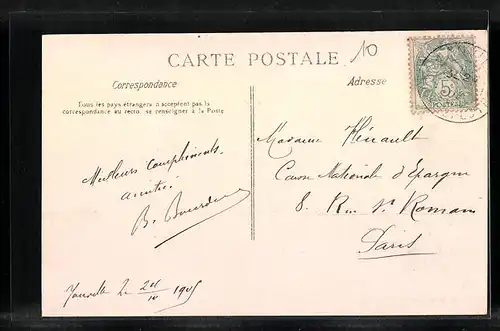 CARTE POSTALE
10
Correspondance
Adresse
Tous les pays étrangers n'acceptent pas la
correspondance au recto, se renseigner à la Poste
5
POSTES
Meilleurs compliments
amitié
B. Bourdin
Madame Hérault
Caisse Nationale d'Epargne
8. Rue St Romain
Paris
le 1905